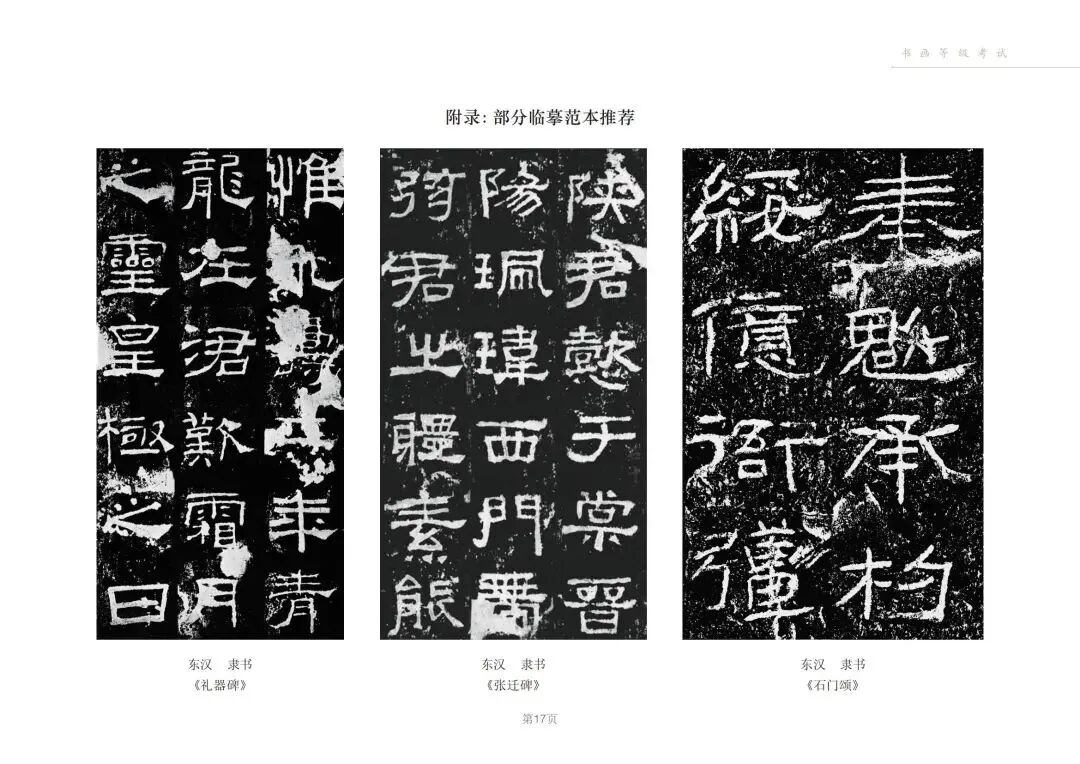 书画等级考试
附录：部分临摹范本推荐
惟永壽年青
龍在涒歎霜月
之靈皇極之日
陝君懿于棠晉
陽珮瑋西門帶
弦君之體素能
奉魁承杓
綏億衙彊
东汉 隶书
《礼器碑》
东汉 隶书
《张迁碑》
东汉 隶书
《石门颂》
第17页